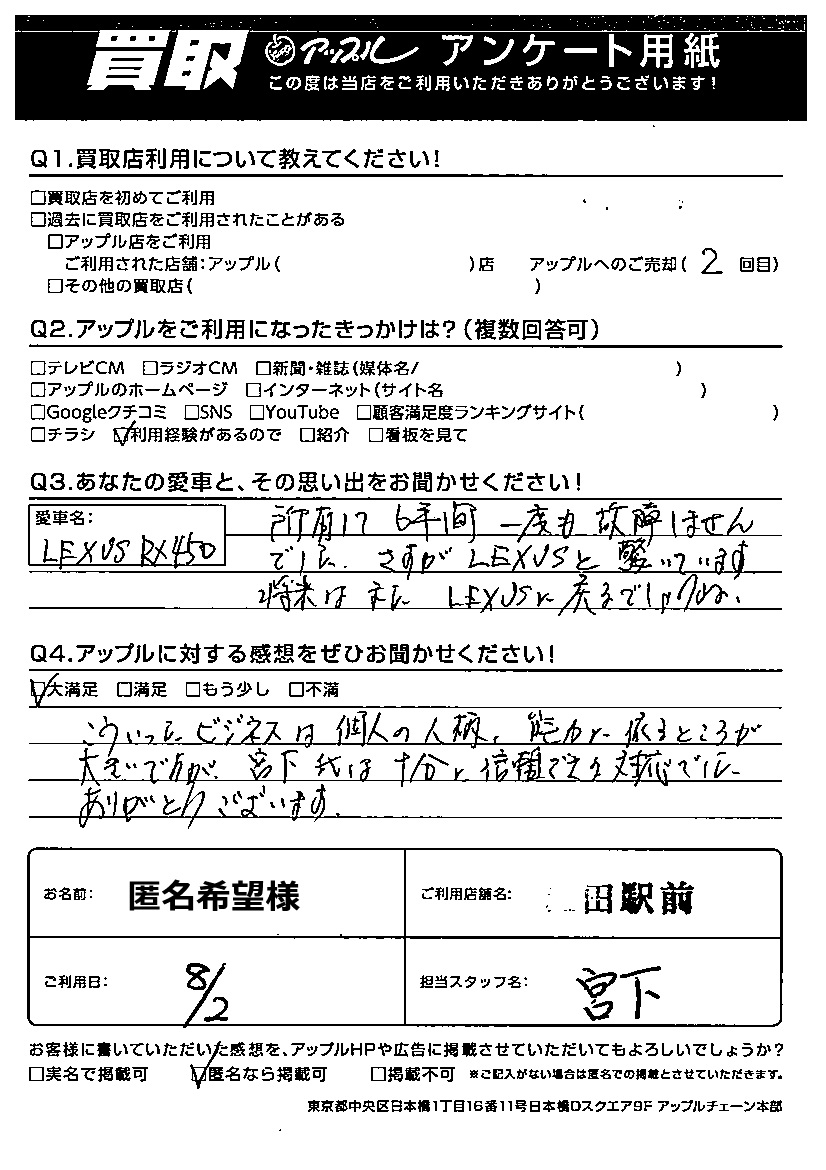 買取 アップル アンケート用紙
この度は当店をご利用いただきありがとうございます!
Q1.買取店利用について教えてください!
□買取店を初めてご利用
□過去に買取店をご利用されたことがある
□アップル店をご利用
ご利用された店舗:アップル( )店 アップルへのご売却( 2 回目)
□その他の買取店( )
Q2.アップルをご利用になったきっかけは?(複数回答可)
□テレビCM □ラジオCM □新聞・雑誌(媒体名/ )
□アップルのホームページ □インターネット(サイト名 )
□Googleクチコミ □SNS □YouTube □顧客満足度ランキングサイト( )
□チラシ ☑利用経験があるので □紹介 □看板を見て
Q3.あなたの愛車と、その思い出をお聞かせください!
愛車名:
LEXUS RX450
所有して 6年間 一度も 故障しません
でした. さすが LEXUSと 驚いています
将来は また LEXUSに 戻るでしょうね.
Q4.アップルに対する感想をぜひお聞かせください!
☑大満足 □満足 □もう少し □不満
こういった ビジネスは 個人の人柄、能力に 依るところが
大きいですが、宮下氏は 十分に 信頼できる 対応でした
ありがとうございます.
お名前: 匿名希望様
ご利用店舗名: 田駅前
ご利用日: 8/2
担当スタッフ名: 宮下
お客様に書いていただいた感想を、アップルHPや広告に掲載させていただいてもよろしいでしょうか?
□実名で掲載可 ☑匿名なら掲載可 □掲載不可 ※ご記入がない場合は匿名での掲載とさせていただきます。
東京都中央区日本橋1丁目16番11号日本橋Dスクエア9F アップルチェーン本部